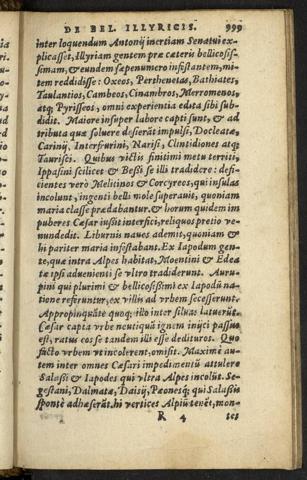 DE BEL. ILLYRICIS. 999
inter loquendum Antonij inertiam Senatui ex-
plicasset, Illyriam gentem præ cæteris bellicosis-
simam, & eundem sæpenumero infestantem, mi-
tem reddidisse: Oxeos, Perthenetas, Bathiates,
Taulantios, Cambeos, Cinambros, Merromenos,
atq; Pyrisseos, omni experientia edita sibi subdi-
didit. Maiore insuper labore capti sunt, & ad
tributa quæ soluere desierāt impulsi, Docleatæ,
Carinij, Interfrurini, Narisi, Clintidiones atq;
Taurisci. Quibus victis finitimi metu territi,
Ippasini scilicet & Bessi se illi tradidere: defi-
cientes verò Melitinos & Corcyreos, qui insulas
incolunt, ingenti belli mole superauit, quoniam
maria classe prædabantur. & horum quidem im
puberes Cæsar iussit interfici, reliquos pretio ve-
nundedit. Liburnis naues ademit, quoniam &
hi pariter maria infestabant. Ex Iapodum gen-
te, quæ intra Alpes habitat, Moentini & Edea
tæ ipsi aduenienti se vltro tradiderunt. Auru-
pini qui plurimi & bellicosissimi ex Iapodū na-
tione referuntur, ex villis ad vrbem secesserunt.
Appropinquāte quoq; illo inter siluas latuerūt.
Cæsar capta vrbe neutiquā ignem inijci passus
est, ratus eos se tandem illi esse dedituros. Quo
facto vrbem vt incolerent, omisit. Maximè au-
tem inter omnes Cæsari impedimentū attulere
Salassi & Iapodes qui vltra Alpes incolūt. Se-
gestani, Dalmatæ, Daisij, Pæonesq; qui Salassis
spontè adhæserāt. hi vertices Alpiū tenēt, mon-
R 4 tes